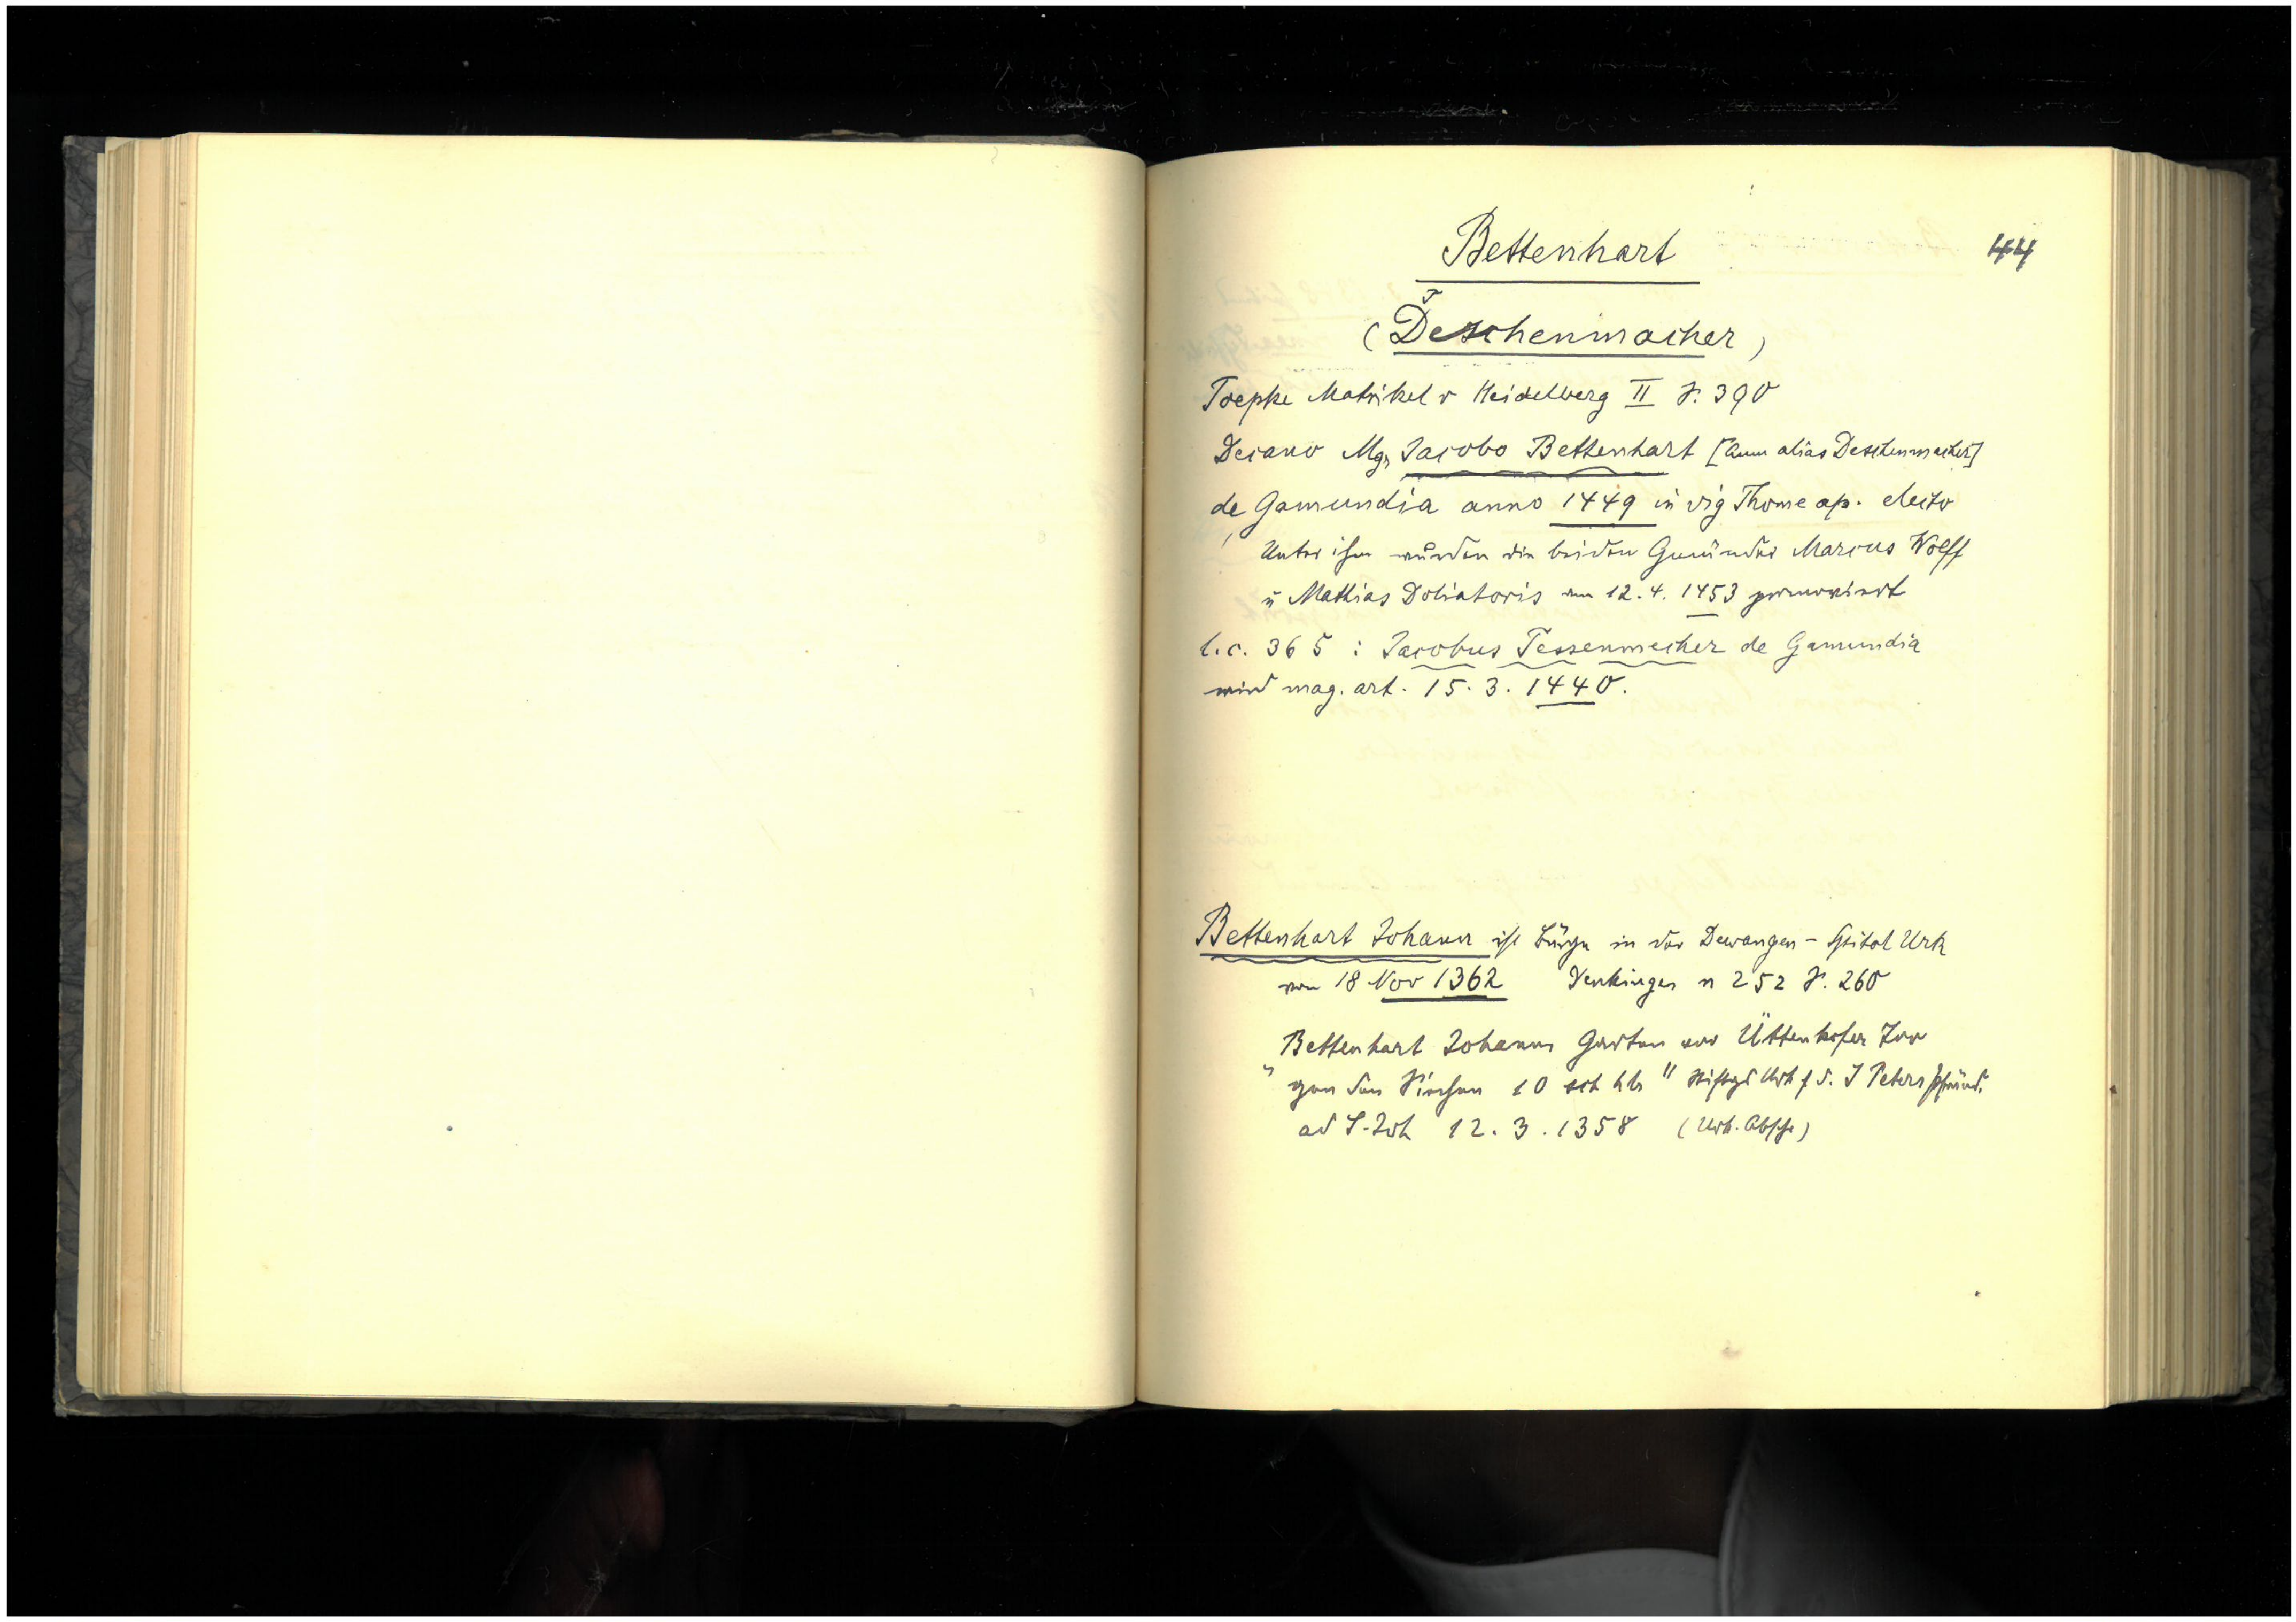 44
Bettenhart
T
(Deschenmacher)
Toepke Matrikel v Heidelberg II S. 390
Decano Mgr Jacobo Bettenhart [Anm alias Deschenmacher]
de Gamundia anno 1449 in vig Thome ap. electo
Unter ihm wurden die beiden Gmünder Marcus Wolff
u Mathias Doliatoris am 12. 4. 1453 promoviert
l. c. 365 : Jacobus Tessenmecher de Gamundia
wird mag. art. 15. 3. 1440.
Bettenhart Johann ist Bürge in der Dewangen - Spital Urk
von 18 Nov 1362 Denkinger n 252 S. 260
Bettenhart Johanns Garten vor Üttenkofer Tor
"gen den Siechen 10 sch hlr" Stiftgs Urk f d. S Peters Pfründ.
ad S. Joh 12. 3. 1358 (Urk. Abschr)